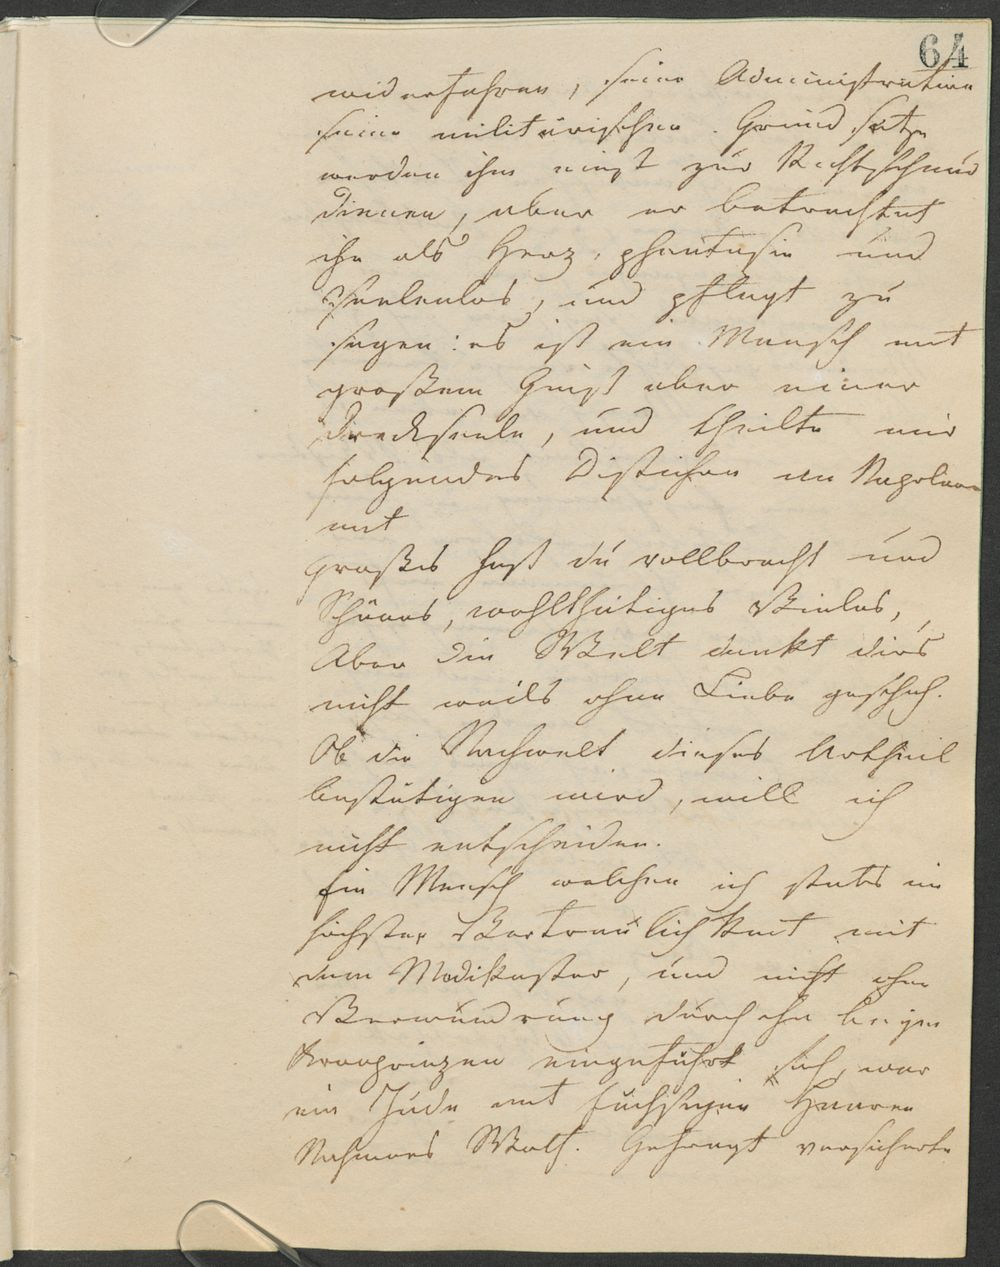 64
widerfahren, seine Administration
seine militärischen Grundsätze
werden ihm einst zur Richtschnur
dienen, aber er betrachtet
ihn als Herz, phantasie und
Seelenlos, und pflegt zu
sagen: es ist ein Mensch mit
großem Geist aber einer
Dreckseele, und theilte mir
folgendes Distichon an Napoleon
mit
großes hast du vollbracht und
Schönes, wohlthätiges Vieles,
Aber die Welt dankt dirs
nicht weils ohne Liebe geschah.
Ob die Nachwelt dieses Urtheil
bestätigen wird, will ich
nicht entscheiden.
Ein Mensch welchen ich stets in
höchster Vertraulichkeit mit
dem Medikaster, und nicht ohne
Verwunderung durch ihn beym
Kronprinzen eingeführt sah, war
ein Jude mit fuchsigen Haaren
Nahmens Wolf. Gefragt versicherte